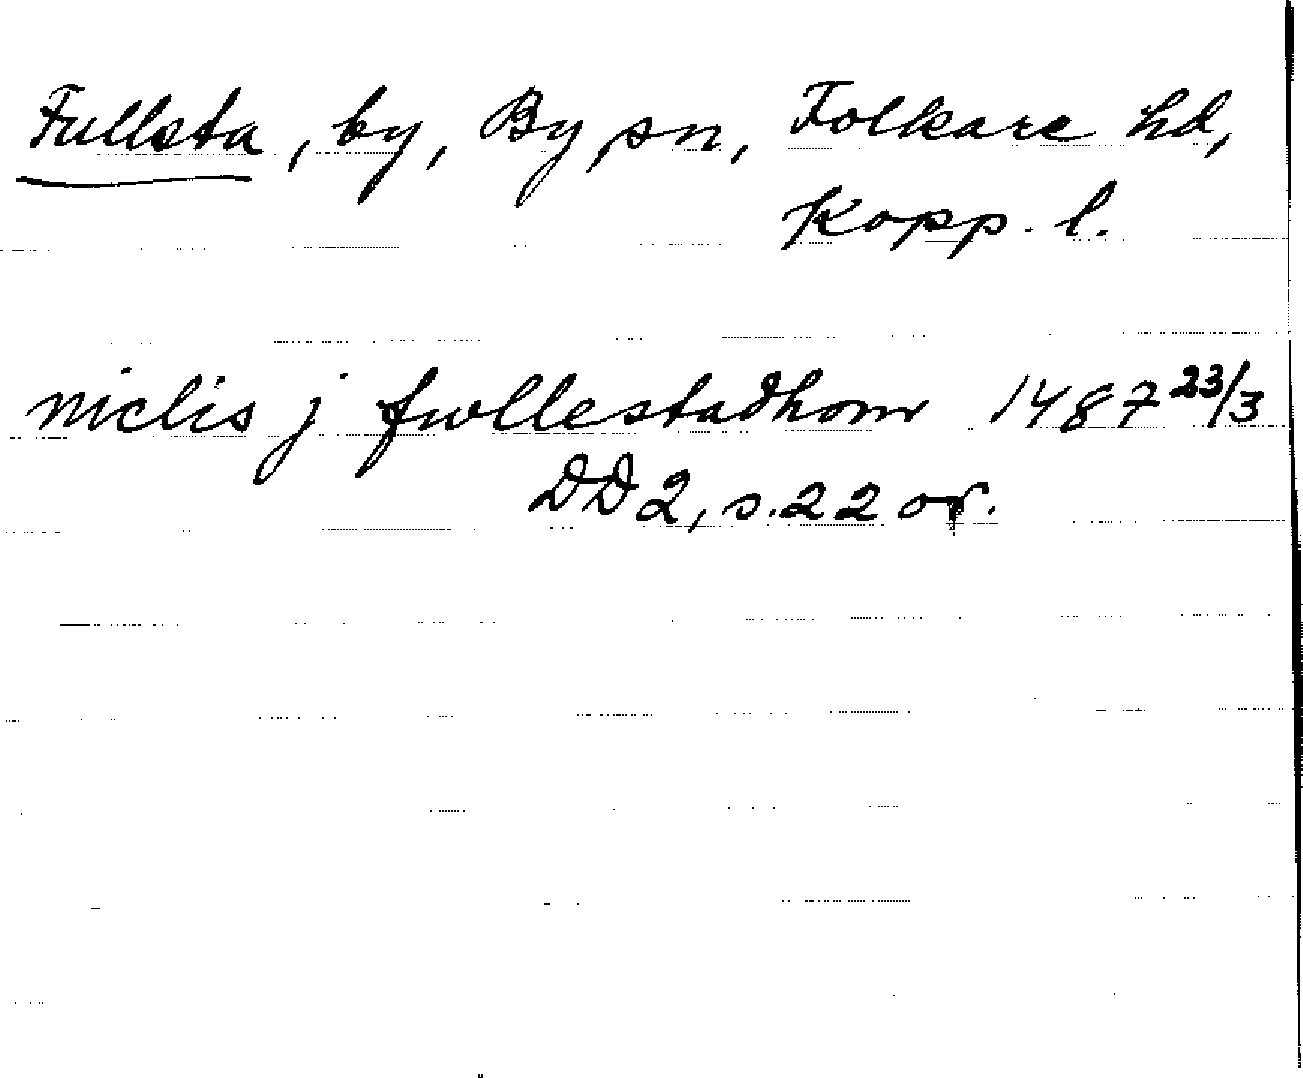 Fullsta, by, By sn, Folkare hd,
Kopp. l.
niclis j fwllestadhom 1487 23/3
DD 2, s. 22 or.